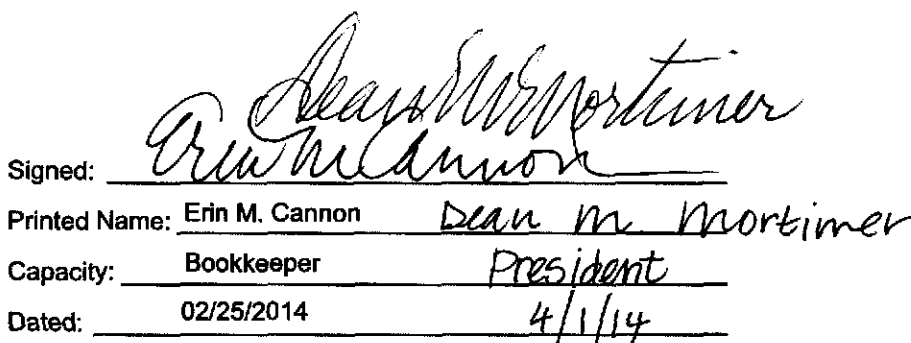 Dean M Mortimer
Signed: Erin M Cannon
Printed Name: Erin M. Cannon Dean M. Mortimer
Capacity: Bookkeeper President
Dated: 02/25/2014 4/1/14